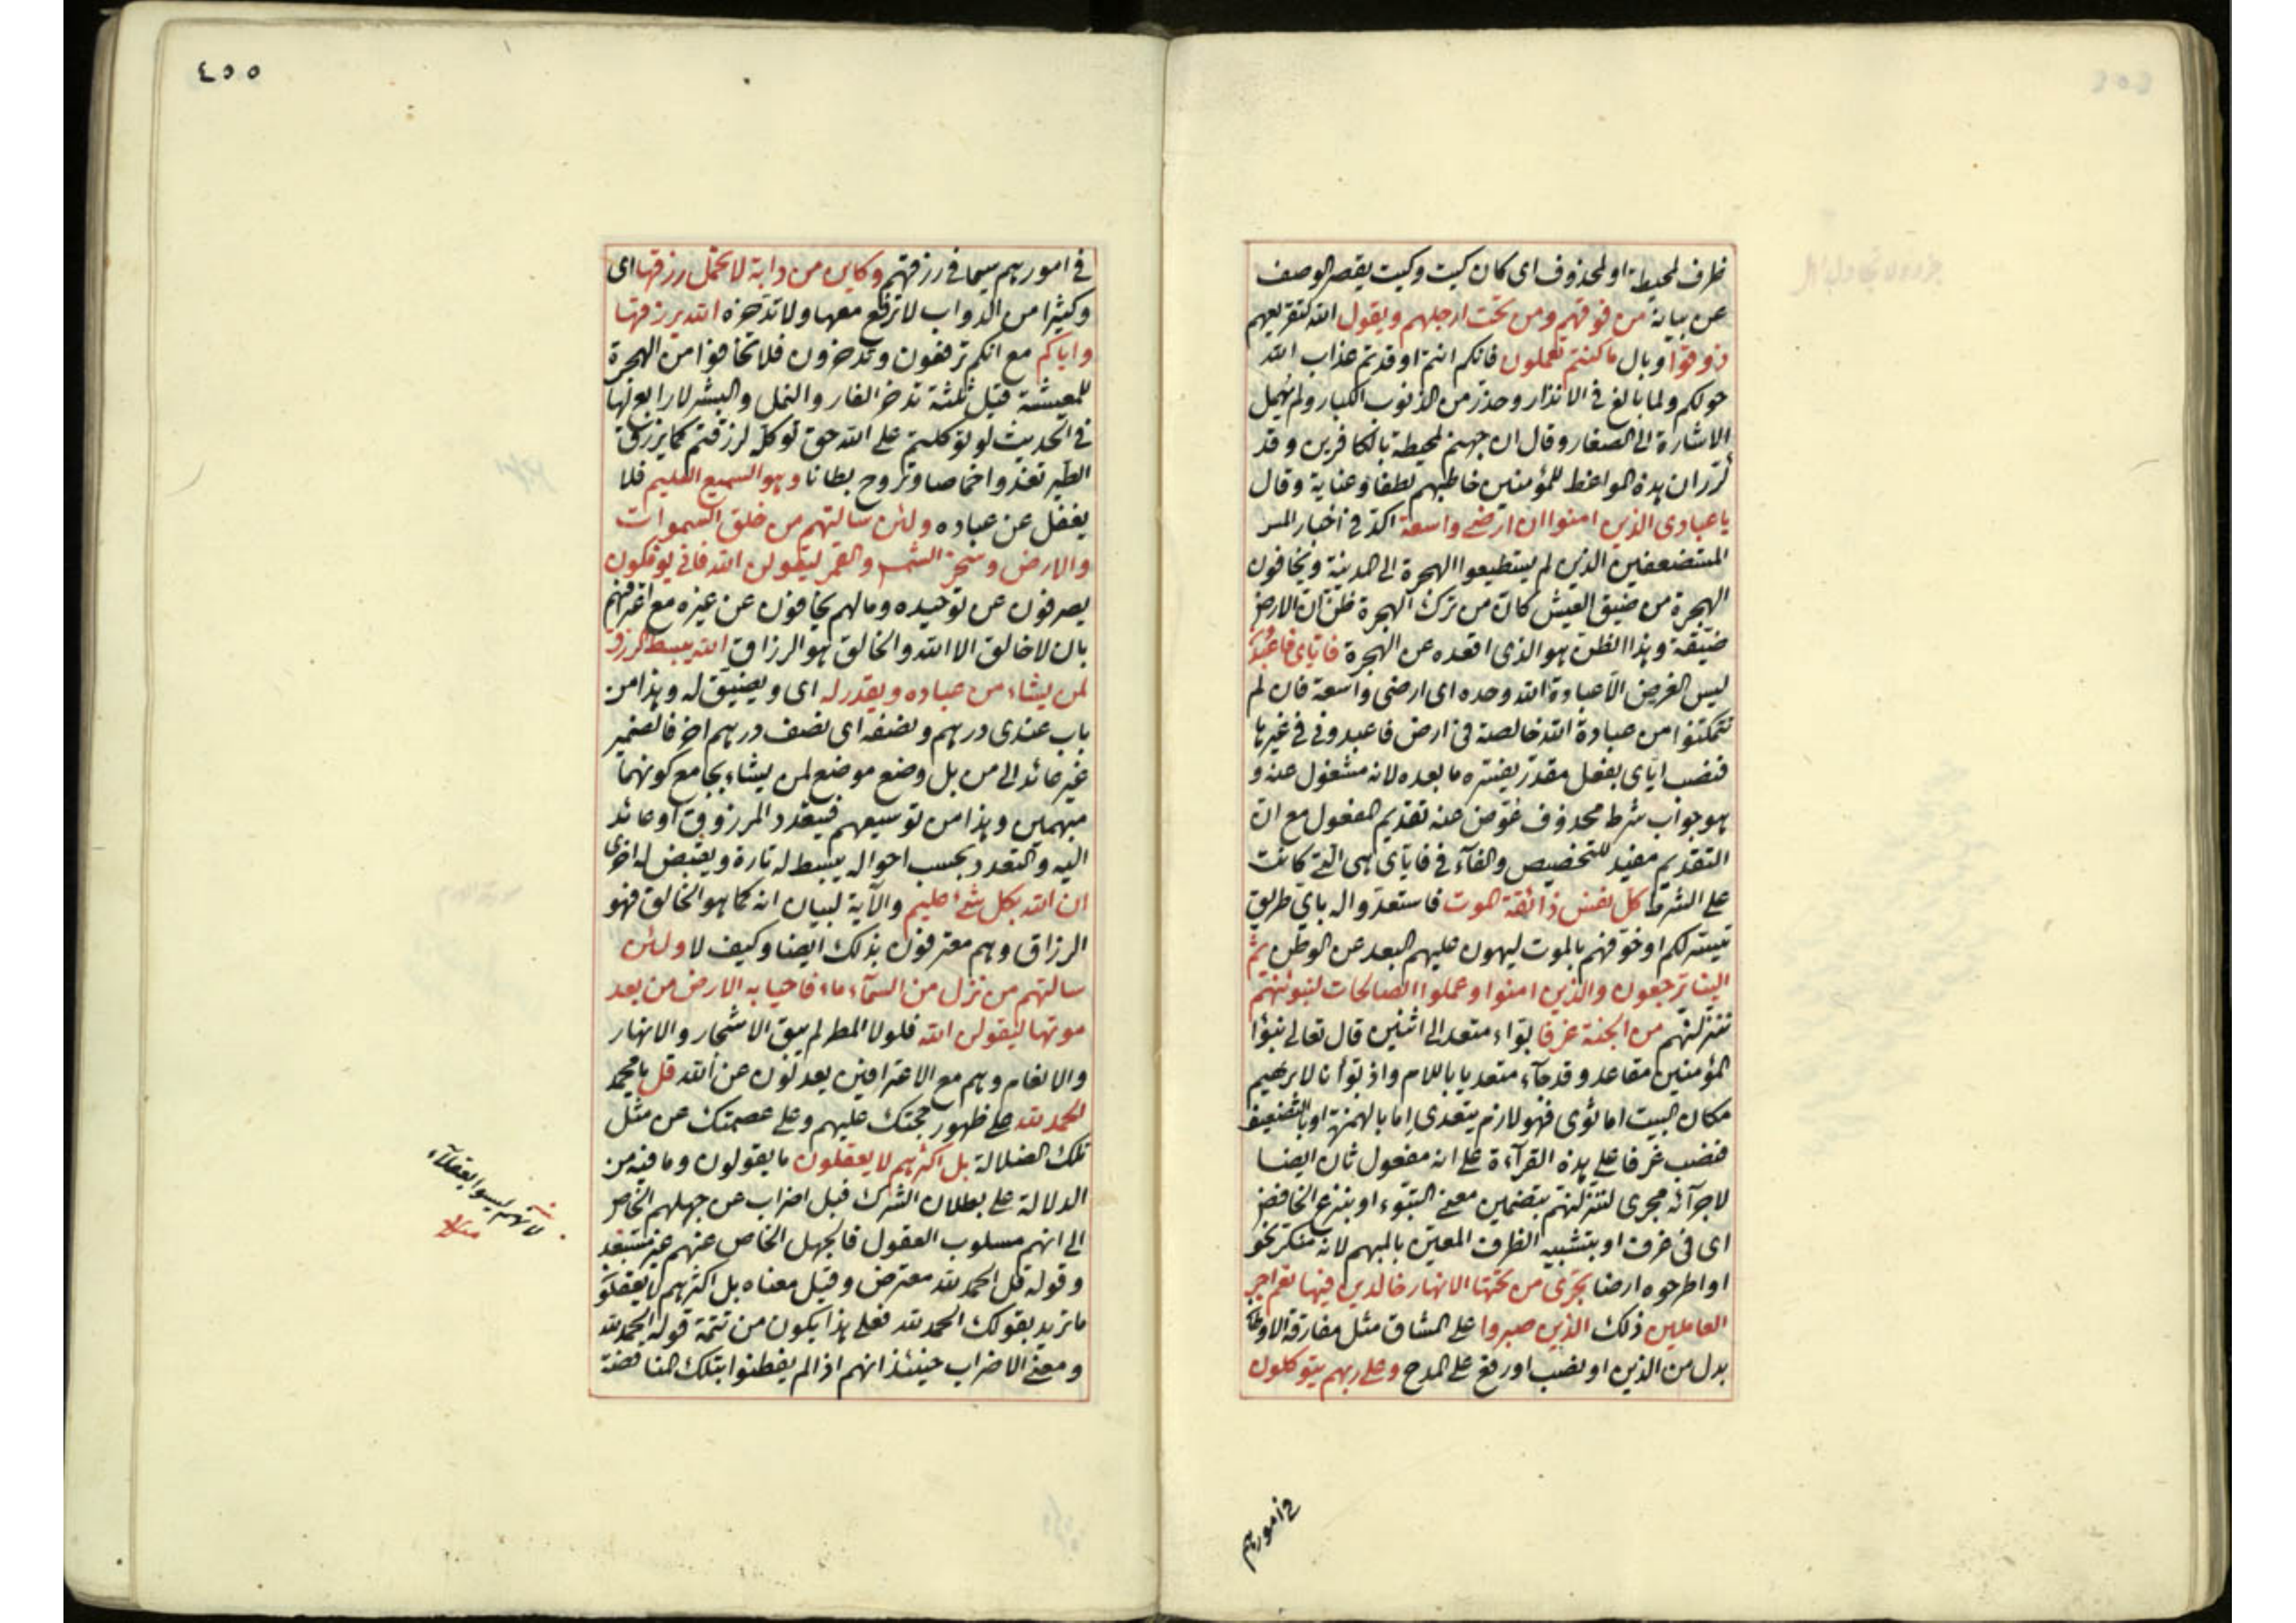 ظرف لمحيطة او لمحذوف اى كان كيت وكيت يقصر الوصف
عن بيانه من فوقهم ومن تحت ارجلهم ويقول الله لتقريعهم
ذوقوا وبال ما كنتم تعملون فانكم انتم اوقدتم عذاب الله
حولكم ولما بالغ فى الانذار وحذر من الذنوب الكبار ولم يهمل
الاشارة الى الصغار وقال ان جهنم لمحيطة بالكافرين وقد
قرر ان هذه المواعظ للمؤمنين خاطبهم لطفا وعناية وقال
يا عبادى الذين امنوا ان ارضى واسعة اكد فى اخبار المسر
المستضعفين الذين لم يستطيعوا الهجرة الى المدينة ويخافون
الهجرة من ضيق العيش كان من ترك الهجرة ظن ان الارض
ضيقة وهذا الظن هو الذى اقعده عن الهجرة فاياى فاعبدون
ليس الغرض الا عبادة الله وحده اى ارضى واسعة فان لم
تتمكنوا من عبادة الله خالصة فى ارض فاعبدونى فى غيرها
فنصب اياى بفعل مقدر يفسره ما بعده لانه مشغول عنه و
هو جواب شرط محذوف عوض عنه تقديم المفعول مع ان
التقديم مفيد للتخصيص والفآء فى فاياى هى التى كانت
على الشرط كل نفس ذائقة الموت فاستعدوا له باى طريق
تيسر لكم او خوفهم بالموت ليهون عليهم البعد عن الوطن ثم
الينا ترجعون والذين امنوا وعملوا الصالحات لنبوئنهم
ننزلنهم من الجنة غرفا بواء متعد الى اثنين قال تعالى تبوؤا
المؤمنين مقاعد وقد جآء متعديا باللام واذ بوأنا لابرهيم
مكان البيت اما ثوى فهو لازم يتعدى اما بالهمزة او بالتضعيف
فنصب غرفا على هذه القرآءة على انه مفعول ثان ايضا
لاجرآئه مجرى لننزلنهم بتضمين معنى التبوء او بنزع الخافض
اى فى غرف او بتشبيه الظرف المعين بالمبهم لانه منكر نحو
او اطرحوه ارضا تجرى من تحتها الانهار خالدين فيها نعم اجر
العاملين ذلك الذين صبروا على المشاق مثل مفارقة الاوطان
بدل من الذين او نصب او رفع على المدح وعلى ربهم يتوكلون
فى امورهم
٤٥٥
فى امورهم سيما فى رزقهم وكاين من دابة لا تحمل رزقها اى
وكثيرا من الدواب لا ترفع معها ولا تدخره الله يرزقها
واياكم مع انكم ترفعون وتدخرون فلا تخافوا من الهجرة
للمعيشة قيل ثلثة تدخر الفار والنمل والبشر لا رابع لها
فى الحديث لو توكلتم على الله حق توكله لرزقتم كما يرزق
الطير تغذوا خماصا وتروح بطانا وهو السميع العليم فلا
يغفل عن عباده ولئن سالتهم من خلق السموات
والارض وسخر الشمس والقمر ليقولن الله فانى يؤفكون
يصرفون عن توحيده وما لهم يخافون عن غيره مع اعترافهم
بان لا خالق الا الله والخالق هو الرزاق الله يبسط الرزق
لمن يشاء من عباده ويقدر له اى ويضيق له وهذا من
باب عندى درهم ونصفه اى نصف درهم اخر فالضمير
غير عائد الى من بل وضع موضع لمن يشاء بجامع كونهما
مبهمين وهذا من توسيعهم فيتعدد المرزوق او عائد
اليه والتعدد بحسب احواله يبسط له تارة ويقبض له اخرى
ان الله بكل شئ عليم والآية لبيان انه كما هو الخالق فهو
الرزاق وهم معترفون بذلك ايضا وكيف لا ولئن
سالتهم من نزل من السمآء ماء فاحيا به الارض من بعد
موتها ليقولن الله فلولا المطر لم يبق الاشجار والانهار
والانعام وهم مع الاعترافين يعدلون عن الله قل يا محمد
الحمد لله على ظهور حجتك عليهم وعلى عصمتك عن مثل
تلك الضلالة بل اكثرهم لا يعقلون ما يقولون وما فيه من
الدلالة على بطلان الشرك قيل اضراب عن جهلهم الخاص
الى انهم مسلوب العقول فالجهل الخاص عنهم غير مستبعد
وقوله قل الحمد لله معترض وقيل معناه بل اكثرهم لا يعقلون
ما تريد بقولك الحمد لله فعلى هذا يكون من تتمة قوله الحمد لله
ومعنى الاضراب حينئذ انهم اذا لم يفطنوا بتلك المناقضة
لانهم ليسوا بعقلآء
منه